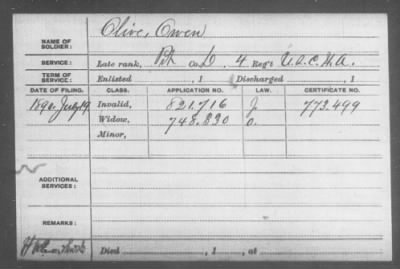 NAME OF SOLDIER: Olive, Owen
SERVICE: Late rank, Pvt Co. D, 4 Reg't U.S.C.H.A.
TERM OF SERVICE: Enlisted , 1 Discharged , 1
DATE OF FILING. CLASS. APPLICATION NO. LAW. CERTIFICATE NO.
1890, July 19. Invalid, 821.716 J 773.499
Widow, 748.830 O.
Minor,
ADDITIONAL SERVICES:
REMARKS:
Died , 1 , at